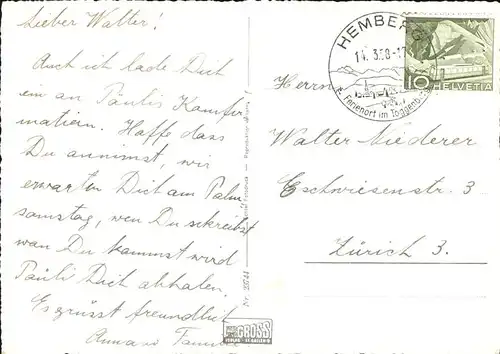 Lieber Walter!
Auch ich lade Dich
ein an Paulis Konfir
mation. Hoffe dass
Du annimst, wir
erwarten Dich am Palm
samstag, wen Du schreibst
wan Du kommst wird
Pauli Dich abhalen.
Es grüsst freundlich
HEMBERG
14.3.58-17
Ferienort im Toggenburg
10
HELVETIA
Herrn
Walter Niederer
Eschwiesenstr. 3
Zürich 3.
GROSS